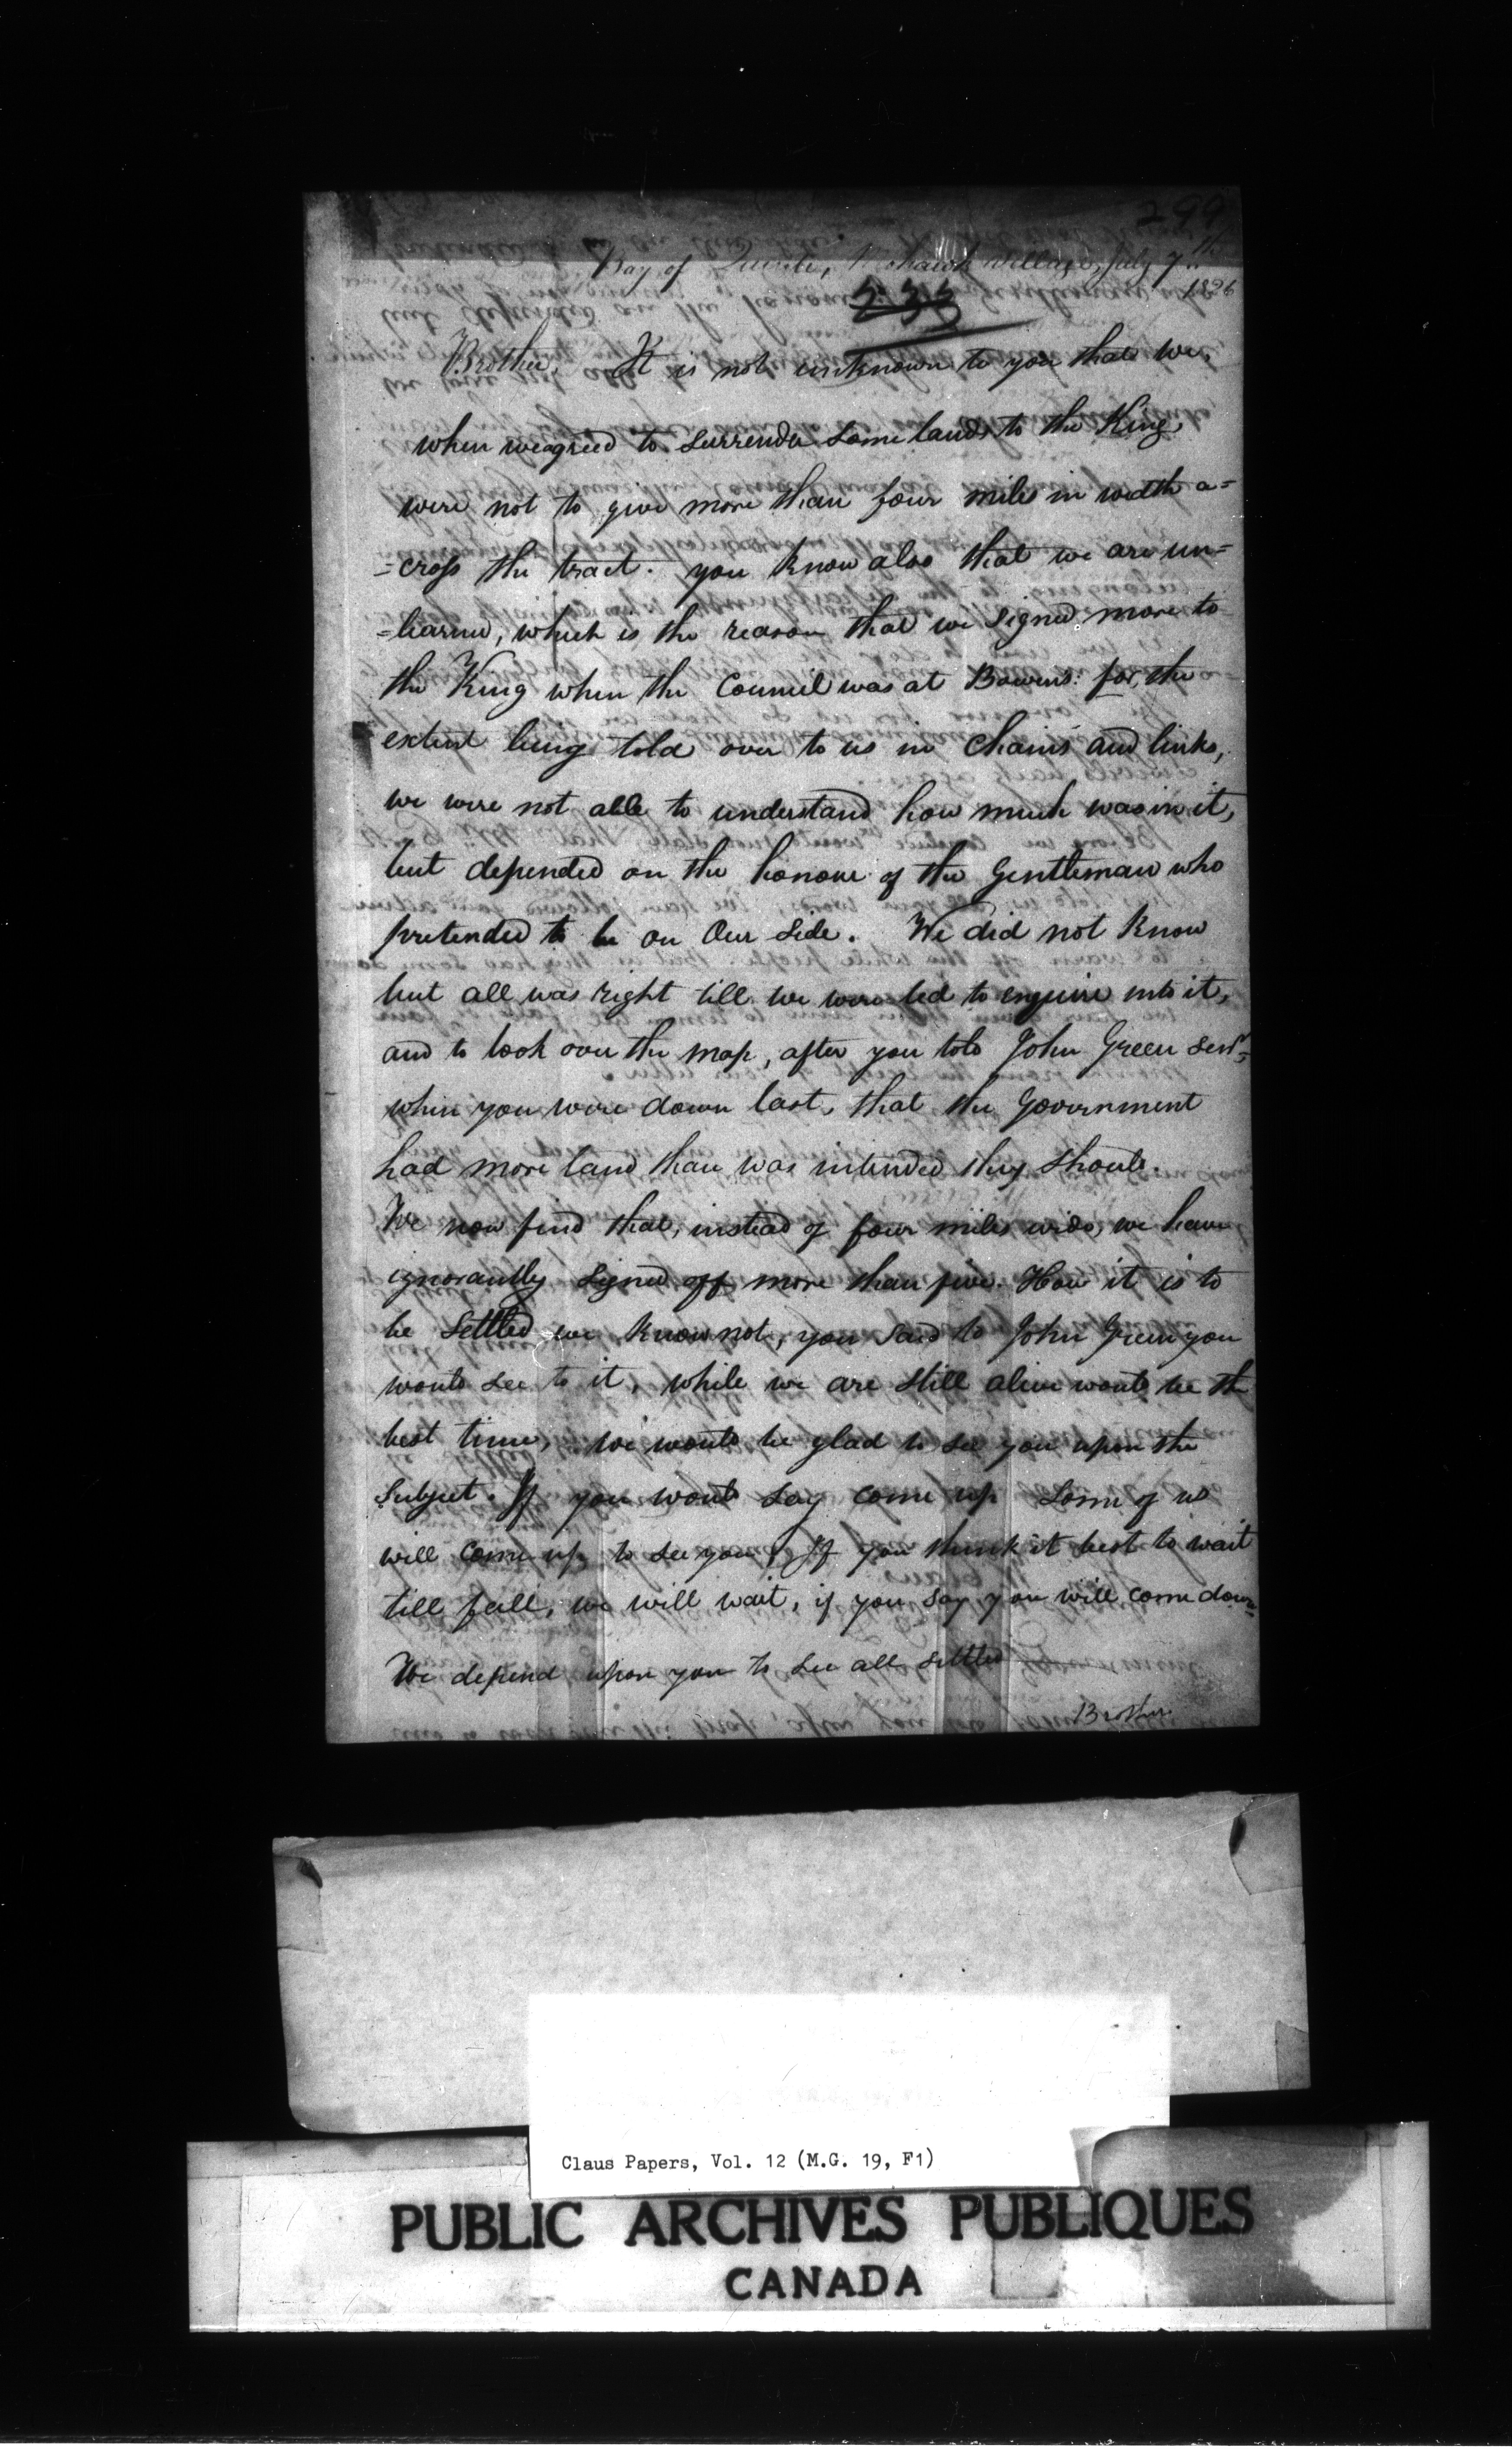 299
Bay of Quinte, Mohawk Village, July 7th
1826
533
Brother, It is not unknown to you that we,
when we agreed to surrender some lands to the King,
were not to give more than four miles in width a=
=cross the tract. you know also that we are un=
=learned, which is the reason that we signed more to
the King when the Council was at Bowens: for, the
extent being told over to us in Chains and links,
we were not able to understand how much was in it,
but depended on the honour of the Gentleman who
pretended to be on Our side. We did not know
but all was right till we were led to enquire into it,
and to look over the map, after you told John Green Senr,
when you were down last, that the Government
had more land than was intended they should.
We now find that, instead of four miles wide, we have
ignorantly signed off more than five. How it is to
be Settled we know not, you said to John Green you
would see to it, while we are still alive would be th
best time, We would be glad to see you upon the
Subject. If you would say come up some of us
will come up to see you, If you think it best to wait
till fall, we will wait, if you say you will come down
We depend upon you to see all settled
Brother
Claus Papers, Vol. 12 (M.G. 19, F1)
PUBLIC ARCHIVES PUBLIQUES
CANADA